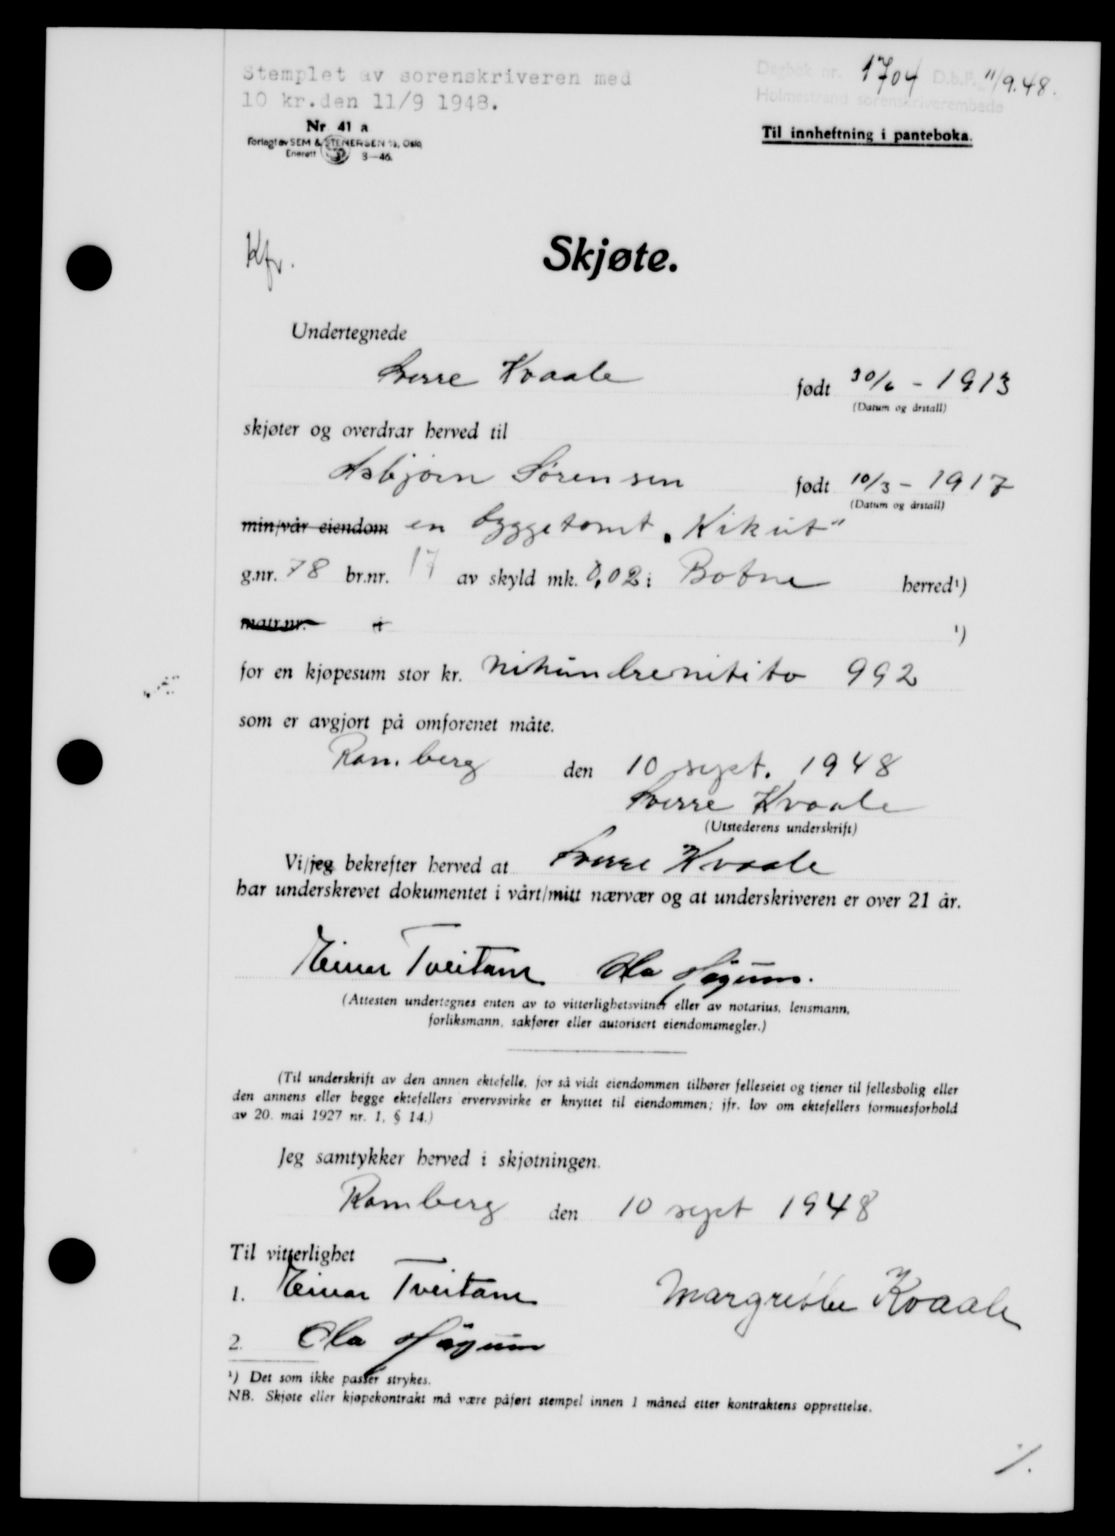 Stemplet av sorenskriveren med
10 kr.den 11/9 1948.
Dagbok nr. 1704 D.b.f. 11/9.48.
Holmestrand sorenskriverembede
Nr 41 a
Forlagt av SEM & STENERSEN A/S, Oslo
Enerett 3-46.
Til innheftning i panteboka.
Kfr.
Skjøte.
Undertegnede
Sverre Kvaale født 30/6 - 1913
(Datum og årstall)
skjøter og overdrar herved til
Asbjørn Sørensen født 10/3 - 1917
(Datum og årstall)
min/vår eiendom en byggetomt „Kikut"
g.nr. 78 br.nr. 17 av skyld mk. 0,02 i Botne herred¹)
matr.nr. i ¹)
for en kjøpesum stor kr. nihundrenitito 992
som er avgjort på omforenet måte.
Ramberg den 10 sept. 1948
Sverre Kvaale
(Utstederens underskrift)
Vi/jeg bekrefter herved at Sverre Kvaale
har underskrevet dokumentet i vårt/mitt nærvær og at underskriveren er over 21 år.
Einar Tveitan Ola
(Attesten undertegnes enten av to vitterlighetsvitner eller av notarius, lensmann,
forliksmann, sakfører eller autorisert eiendomsmegler.)
(Til underskrift av den annen ektefelle, for så vidt eiendommen tilhører felleseiet og tjener til fellesbolig eller
den annens eller begge ektefellers ervervsvirke er knyttet til eiendommen; jfr. lov om ektefellers formuesforhold
av 20. mai 1927 nr. 1, § 14.)
Jeg samtykker herved i skjøtningen.
Ramberg den 10 sept 1948
Til vitterlighet
1. Einar Tveitan Margrethe Kvaale
2. Ola
¹) Det som ikke passer strykes.
NB. Skjøte eller kjøpekontrakt må være påført stempel innen 1 måned etter kontraktens opprettelse.